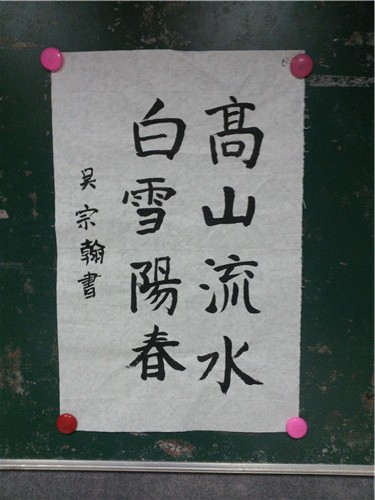 髙山流水
白雪陽春
吴宗翰書